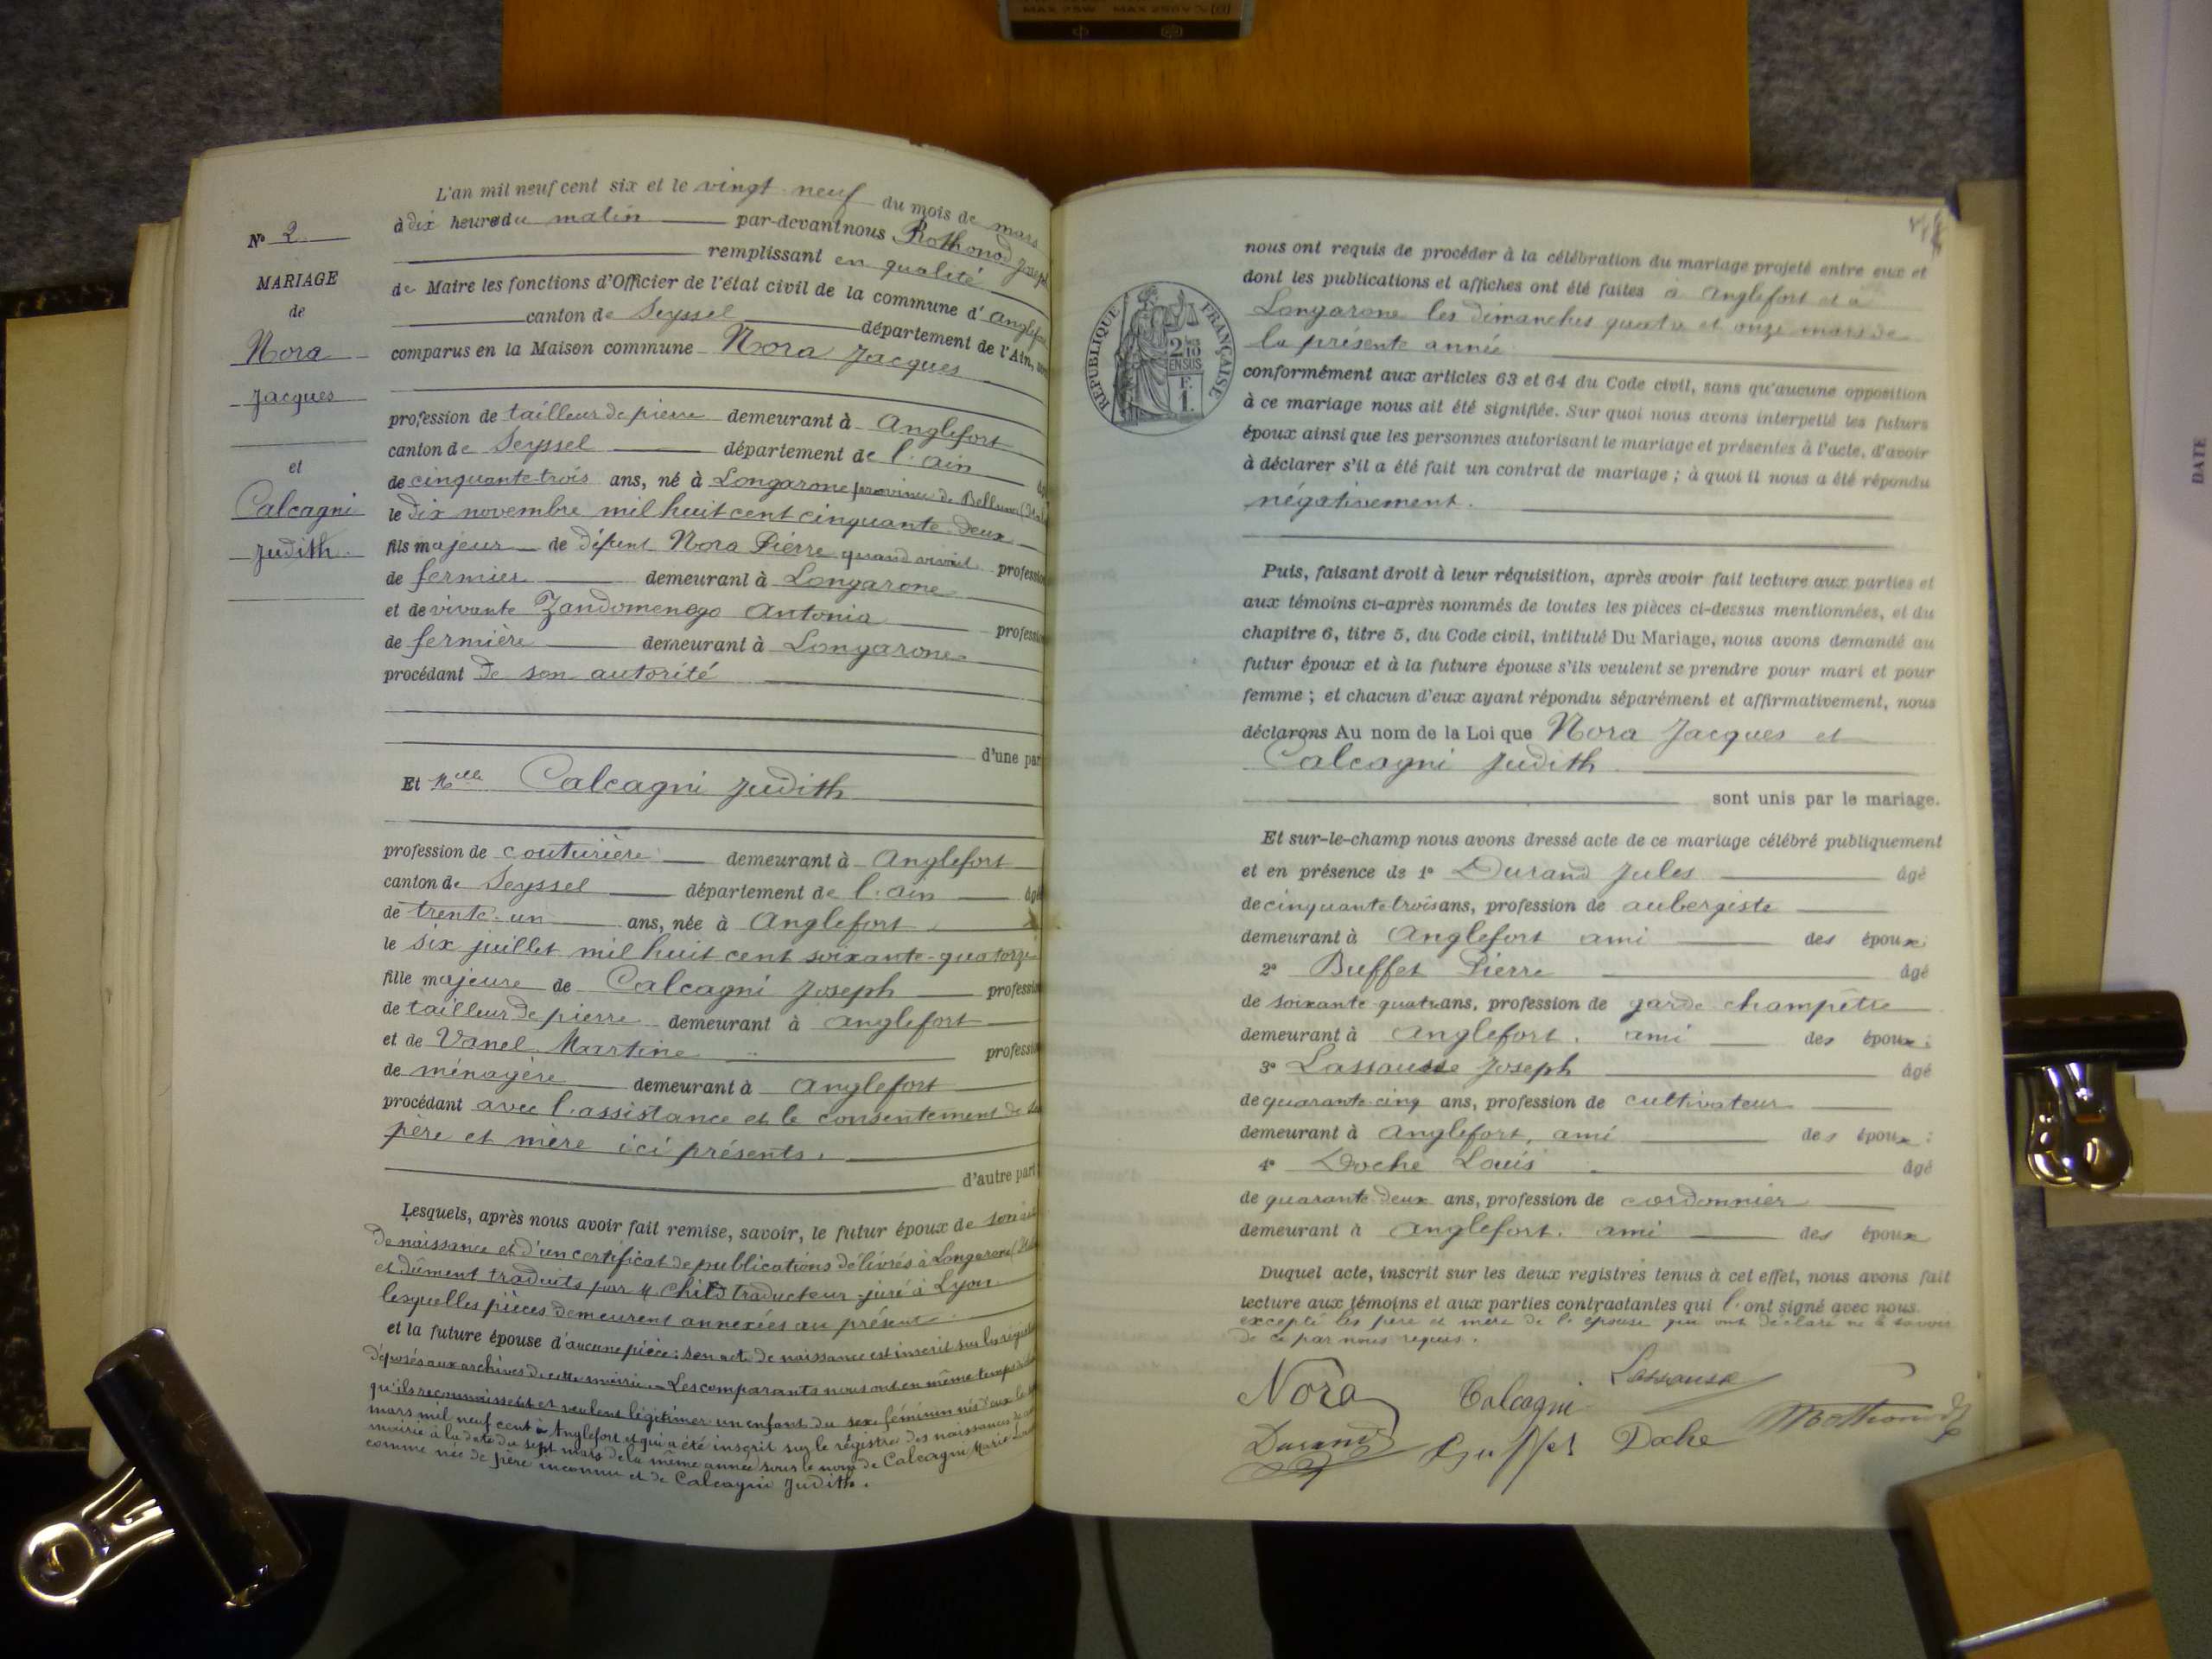 L'an mil neuf cent six et le vingt neuf du mois de mars
à dix heures du matin par-devant nous Rothonod Joseph
remplissant en qualité
de Maire les fonctions d'Officier de l'état civil de la commune d'Anglefort
canton de Seyssel département de l'Ain, sont
comparus en la Maison commune Nora Jacques
profession de tailleur de pierre demeurant à Anglefort
canton de Seyssel département de l'Ain
de cinquante-trois ans, né à Longarone province de Bellune
le dix novembre mil huit cent cinquante-deux
fils majeur de défunt Nora Pierre quand vivait profession
de fermier demeurant à Longarone
et de vivante Zandomenego Antonia profession
de fermière demeurant à Longarone
procédant de son autorité
d'une part
Et Mlle Calcagni Judith
profession de couturière demeurant à Anglefort
canton de Seyssel département de l'Ain âgé
de trente-un ans, née à Anglefort
le six juillet mil huit cent soixante-quatorze
fille majeure de Calcagni Joseph profession
de tailleur de pierre demeurant à Anglefort
et de Vanel Martine profession
de ménagère demeurant à Anglefort
procédant avec l'assistance et le consentement de
père et mère ici présents.
d'autre part
Lesquels, après nous avoir fait remise, savoir, le futur époux de son
de naissance et d'un certificat de publications délivrés à Longarone
et dûment traduits par M. Child traducteur-juré à Lyon
lesquelles pièces demeurent annexées au présent
et la future épouse d'aucune pièce; son acte de naissance est inscrit sur les régistres
déposés aux archives de cette mairie. Les comparants nous ont en même temps
qu'ils reconnaissent et veulent légitimer un enfant du sexe féminin né d'eux le
mars mil neuf cent à Anglefort et qui a été inscrit sur le régistre des naissances de
mairie à la date du sept mars de la même année sous le nom de Calcagni Marie
comme née de père inconnu et de Calcagni Judith.
N° 2
MARIAGE
de
Nora
Jacques
et
Calcagni
Judith.
nous ont requis de procéder à la célébration du mariage projeté entre eux et
dont les publications et affiches ont été faites à Anglefort et à
Longarone les dimanches quatre et onze mars de
la présente année
conformément aux articles 63 et 64 du Code civil, sans qu'aucune opposition
à ce mariage nous ait été signifiée. Sur quoi nous avons interpellé les futurs
époux ainsi que les personnes autorisant le mariage et présentes à l'acte, d'avoir
à déclarer s'il a été fait un contrat de mariage ; à quoi il nous a été répondu
négativement.
RÉPUBLIQUE FRANÇAISE
2/10
EN SUS
F.
1.
Puis, faisant droit à leur réquisition, après avoir fait lecture aux parties et
aux témoins ci-après nommés de toutes les pièces ci-dessus mentionnées, et du
chapitre 6, titre 5, du Code civil, intitulé Du Mariage, nous avons demandé au
futur époux et à la future épouse s'ils veulent se prendre pour mari et pour
femme ; et chacun d'eux ayant répondu séparément et affirmativement, nous
déclarons Au nom de la Loi que Nora Jacques et
Calcagni Judith
sont unis par le mariage.
Et sur-le-champ nous avons dressé acte de ce mariage célébré publiquement
et en présence de 1° Durand Jules âgé
de cinquante-trois ans, profession de aubergiste
demeurant à Anglefort ami des époux;
2° Buffet Pierre âgé
de soixante-quatre ans, profession de garde-champêtre
demeurant à Anglefort, ami des époux;
3° Lassausse Joseph âgé
de quarante-cinq ans, profession de cultivateur
demeurant à Anglefort, ami des époux;
4° Doche Louis âgé
de quarante-deux ans, profession de cordonnier
demeurant à Anglefort, ami des époux
Duquel acte, inscrit sur les deux registres tenus à cet effet, nous avons fait
lecture aux témoins et aux parties contractantes qui l'ont signé avec nous
excepté les père et mère de l'épouse qui ont déclaré ne le savoir
de ce par nous requis.
Nora Calcagni Lassausse
Durand Buffet Doche Rothonod
DATE